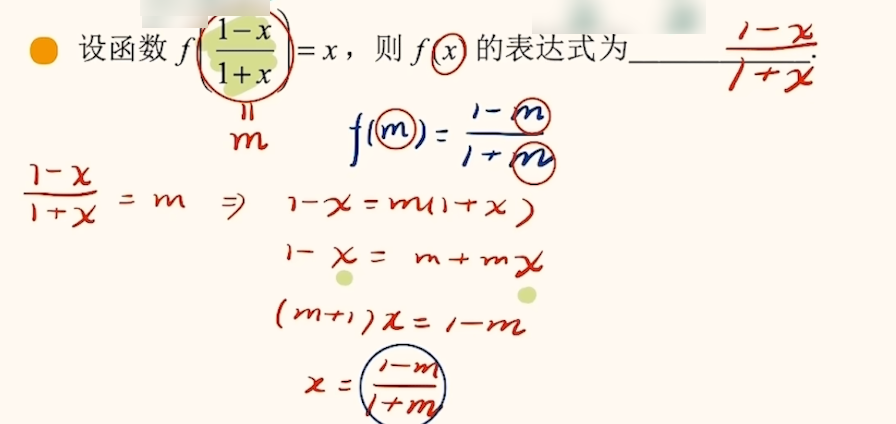 设函数 f((1-x)/(1+x)) = x，则 f(x) 的表达式为________. (1-x)/(1+x)
= m
f(m) = (1-m)/(1+m)
(1-x)/(1+x) = m ⇒ 1-x = m(1+x)
1-x = m+mx
(m+1)x = 1-m
x = (1-m)/(1+m)